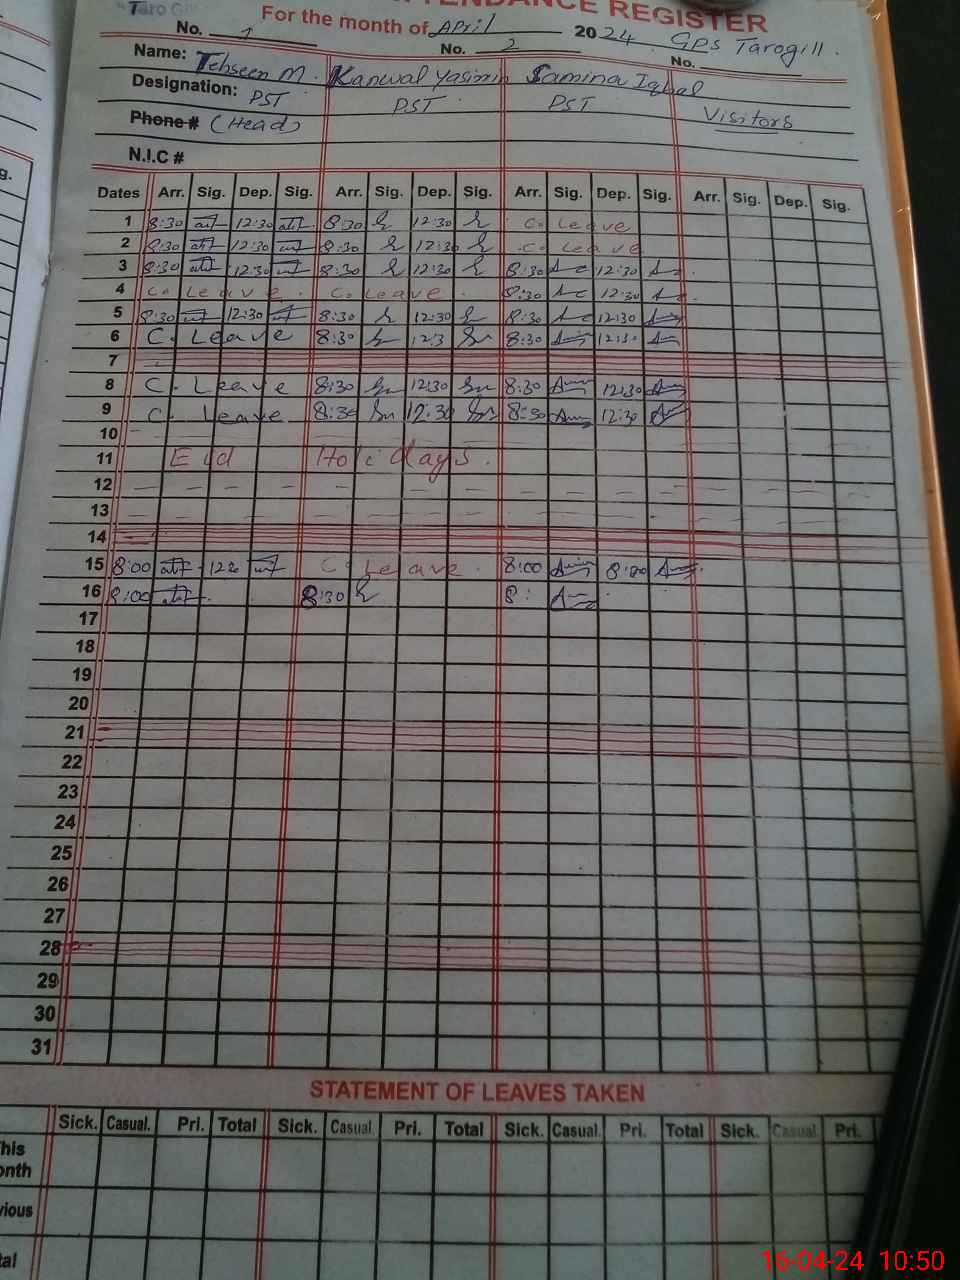 Taro G
ATTENDANCE REGISTER
For the month of April 2024. GPS Tarogill.
No. 1 No. 2 No.
Name: Tehseen M. Kanwal Yasimin Samina Iqbal
Designation: PST PST PST Visitors
Phone # (Head)
N.I.C #
Dates Arr. Sig. Dep. Sig. Arr. Sig. Dep. Sig. Arr. Sig. Dep. Sig. Arr. Sig. Dep. Sig.
1 8:30 12:30 8:30 12:30 C. Leave
2 8:30 12:30 8:30 12:30 C. Leave
3 8:30 12:30 8:30 12:30 8:30 12:30
4 C. Leave. C. Leave. 8:30 12:30
5 8:30 12:30 8:30 12:30 8:30 12:30
6 C. Leave 8:30 12:3 8:30 12:30
7
8 C. Leave 8:30 12:30 8:30 12:30
9 C. Leave 8:30 12:30 8:30 12:30
10
11 Eid Holidays.
12
13
14
15 8:00 C. Leave. 8:00 8:00
16 8:00 8:30 8:
17
18
19
20
21
22
23
24
25
26
27
28
29
30
31
STATEMENT OF LEAVES TAKEN
Sick. Casual. Pri. Total Sick. Casual. Pri. Total Sick. Casual. Pri. Total Sick. Casual. Pri.
his
onth
vious
tal
16-04-24 10:50